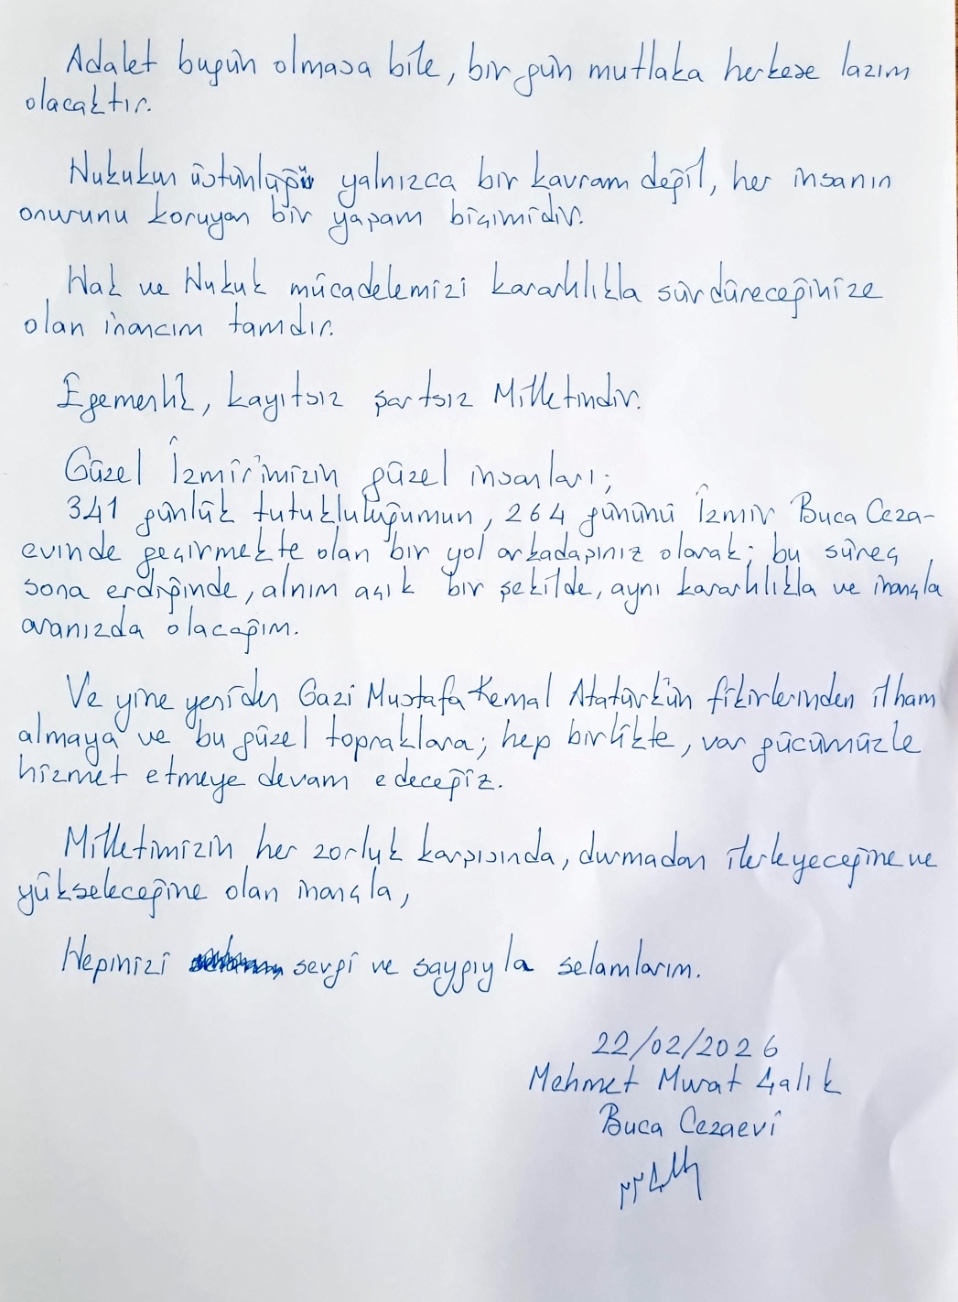 Adalet bugün olmasa bile, bir gün mutlaka herkese lazım
olacaktır.
Hukukun üstünlüğü yalnızca bir kavram değil, her insanın
onurunu koruyan bir yaşam biçimidir.
Hak ve Hukuk mücadelemizi kararlılıkla sürdüreceğinize
olan inancım tamdır.
Egemenlik, kayıtsız şartsız Milletindir.
Güzel İzmir'imizin güzel insanları;
341 günlük tutukluluğumun, 264 gününü İzmir Buca Ceza-
evinde geçirmekte olan bir yol arkadaşınız olarak; bu süreç
sona erdiğinde, alnım açık bir şekilde, aynı kararlılıkla ve inançla
aranızda olacağım.
Ve yine yeniden Gazi Mustafa Kemal Atatürk'ün fikirlerinden ilham
almaya ve bu güzel topraklara; hep birlikte, var gücümüzle
hizmet etmeye devam edeceğiz.
Milletimizin her zorluk karşısında, durmadan ilerleyeceğine ve
yükseleceğine olan inançla,
Hepinizi sevgi ve saygıyla selamlarım.
22/02/2026
Mehmet Murat Çalık
Buca Cezaevi